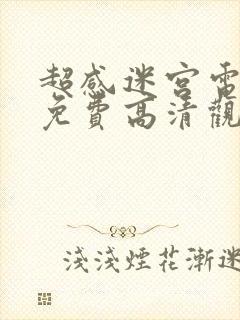 超感迷宮電
免費高清觀
淺淺煙花漸迷